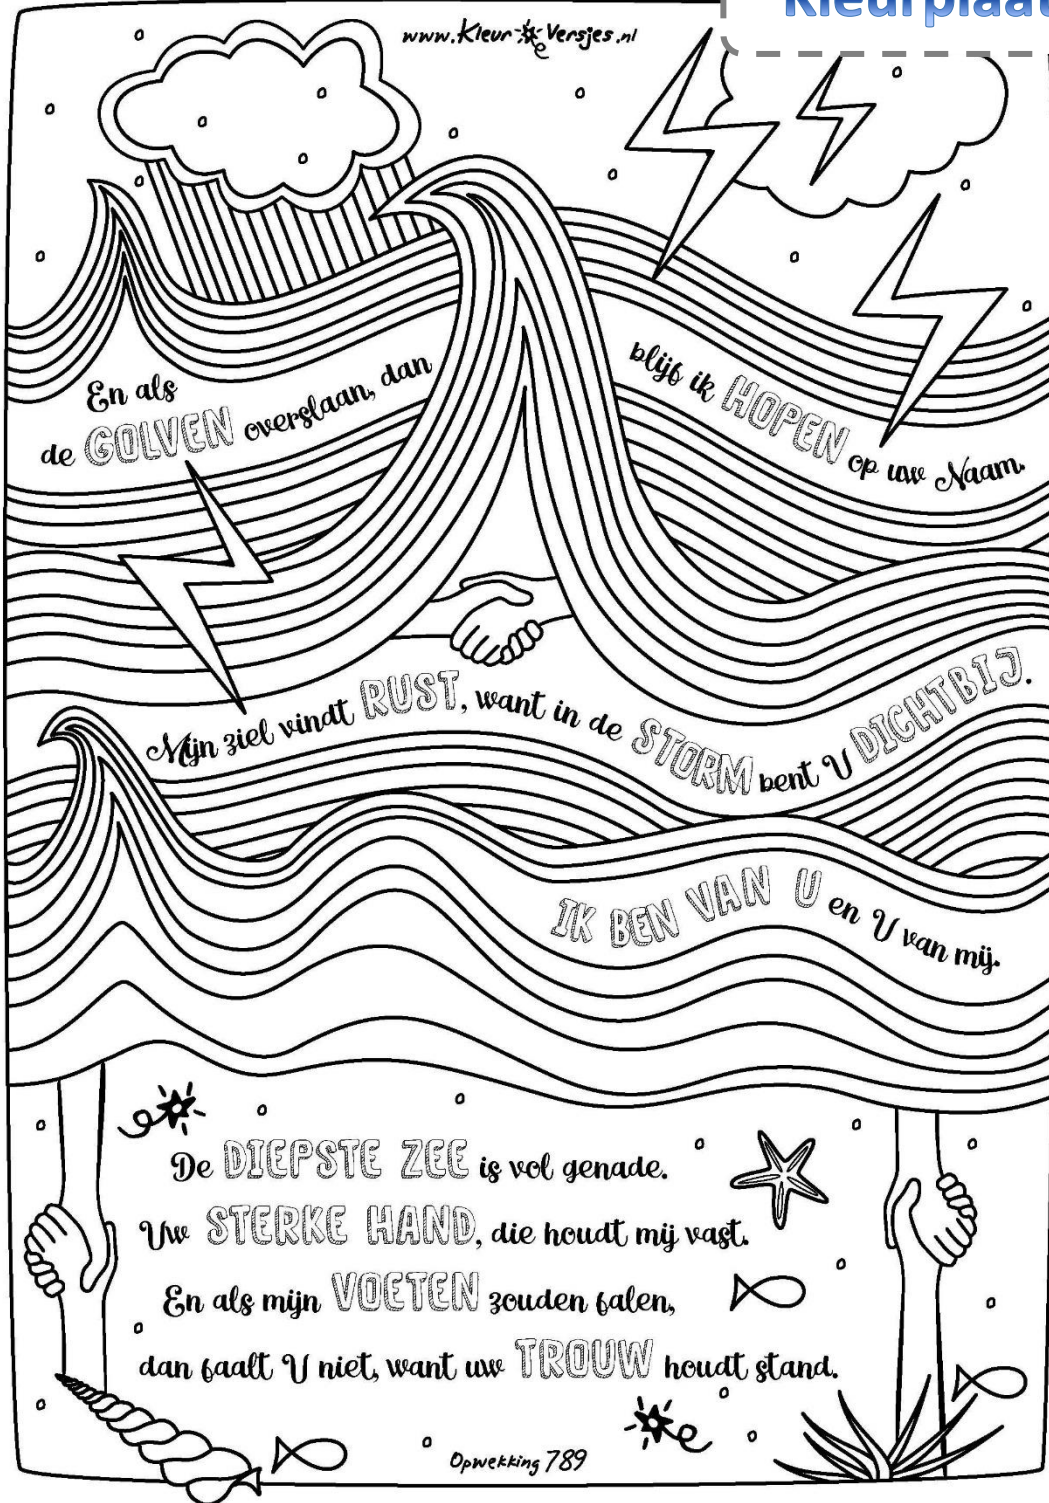 Kleurplaat
www.Kleur Versjes.nl
En als
de GOLVEN overslaan, dan
blijf ik HOPEN op uw Naam.
Mijn ziel vindt RUST, want in de STORM bent U DICHTBIJ.
IK BEN VAN U en U van mij.
De DIEPSTE ZEE is vol genade.
Uw STERKE HAND, die houdt mij vast.
En als mijn VOETEN zouden falen,
dan faalt U niet, want uw TROUW houdt stand.
Opwekking 789